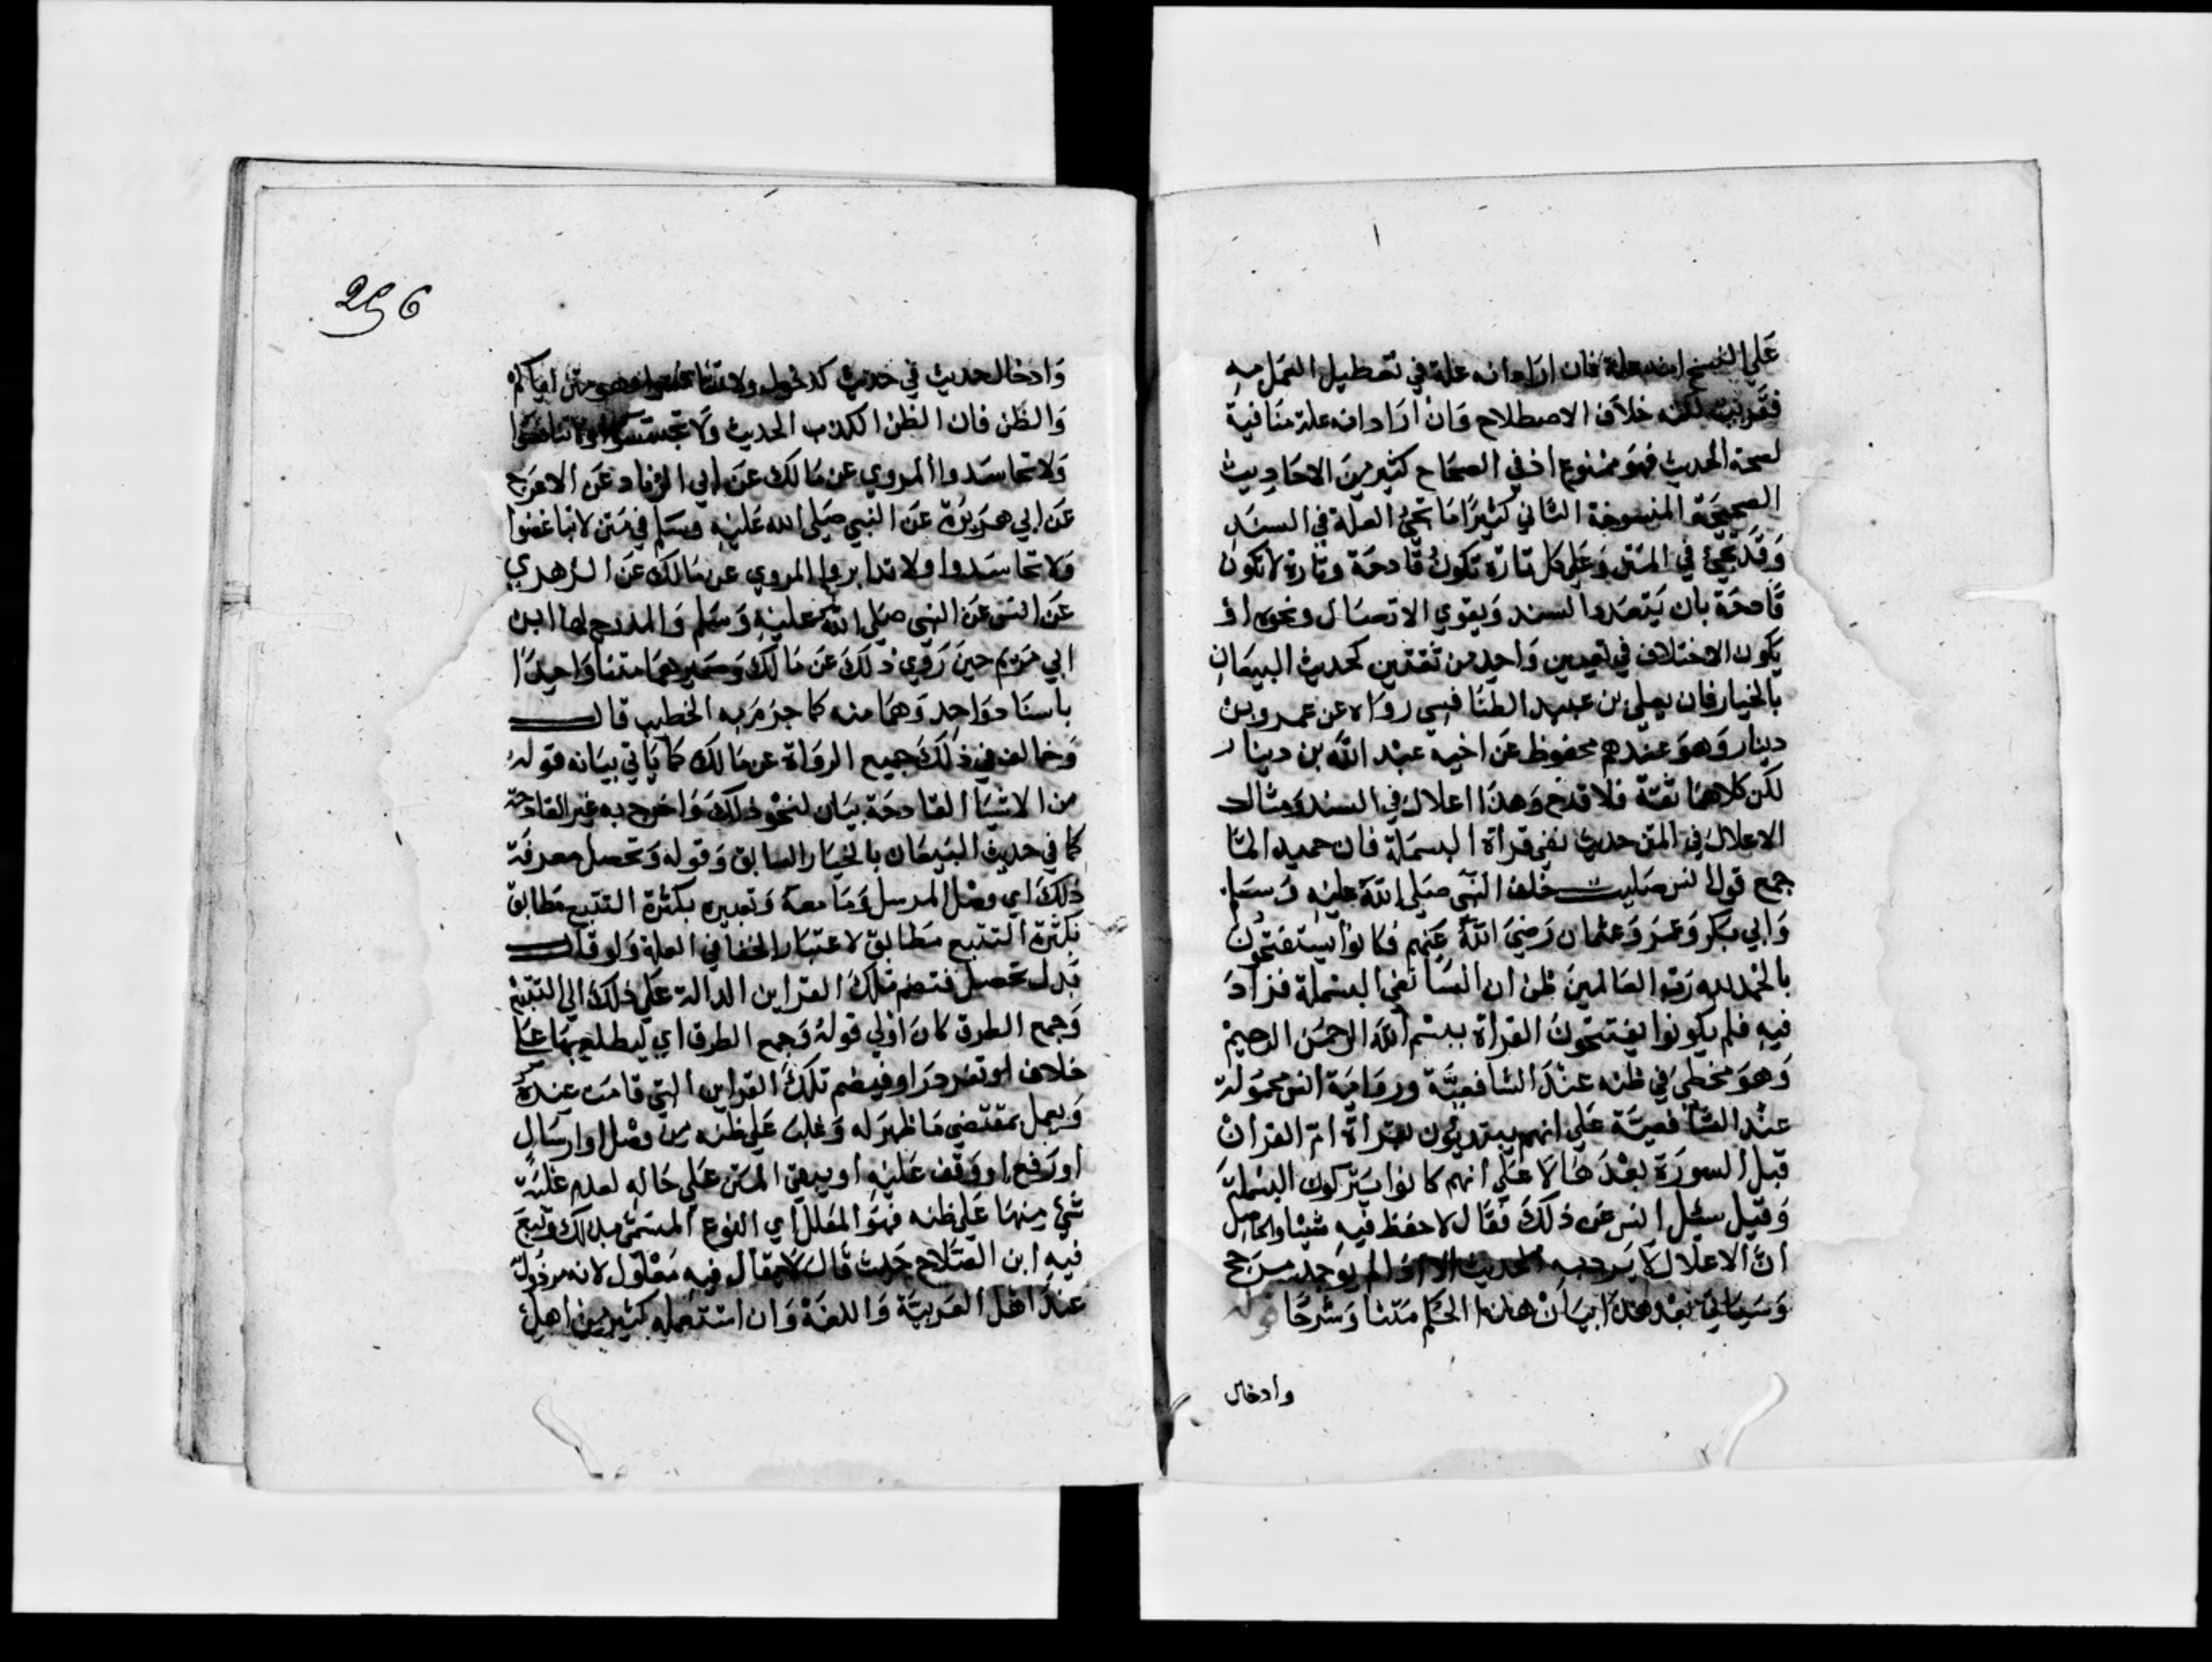 علي النسخ انه علة فان اراد انه علة في تعطيل العمل به
فقريب لكنه خلاف الاصطلاح وان اراد انه علة منافية
لصحة الحديث فهو ممنوع اذ في الصحاح كثير من الاحاديث
الصحيحة المنسوخة الثاني كثيرا ما تجئ العلة في السند
وقد تجئ في المتن وعلي كل تارة تكون قادحة وتارة لا تكون
قادحة بان يتعدد السند ويقوي الاتصال ونحوه او
يكون الاختلاف في تعيين واحد من ثقتين كحديث البيعان
بالخيار فان يعلي بن عبيد الطنافسي رواه عن عمرو بن
دينار وهو عندهم محفوظ عن اخيه عبد الله بن دينار
لكن كلاهما ثقة فلا قدح وهذا اعلال في السند ومثال
الاعلال في المتن حديث نفي قراة البسملة فان حميد لما
جمع قول انس صليت خلف النبي صلي الله عليه وسلم
وابي بكر وعمر وعثمان رضي الله عنهم فكانوا يستفتحون
بالحمد لله رب العالمين ظن ان انسا نفي البسملة فزاد
فيه فلم يكونوا يفتتحون القراة ببسم الله الرحمن الرحيم
وهو مخطئ في ظنه عند الشافعية ورواية انس محمولة
عند الشافعية علي انهم يبتديون بقراة ام القران
قبل السورة بعدها لا علي انهم كانوا يتركون البسملة
وقيل سئل انس عن ذلك فقال لا احفظ فيه شيئا والحاصل
ان الاعلال لا يرد به الحديث الا اذا لم يوجد مرجح
وسياتي بعد هذا بيان هذا الحكم متنا وشرحا قوله
وادخال
296
وادخال حديث في حديث كدخول ولا تنافسوا من متن اياكم
والظن فان الظن اكذب الحديث ولا تجسسوا ولا تنافسوا
ولا تحاسدوا المروي عن مالك عن ابي الزناد عن الاعرج
عن ابي هريرة عن النبي صلي الله عليه وسلم في متن لا تباغضوا
ولا تحاسدوا ولا تدابروا المروي عن مالك عن الزهري
عن انس عن النبي صلي الله عليه وسلم والمدرج لها ابن
ابي مريم حين روي ذلك عن مالك وصيرهما متنا واحدا
باسناد واحد وهما منه كما جزم به الخطيب قال
وخالف في ذلك جميع الرواة عن مالك كما ياتي بيانه قوله
من الاشيا القادحة بيان لنحو ذلك واخرج به غير القادحة
كما في حديث البيعان بالخيار السابق وقوله وتحصل معرفة
ذلك اي وصل المرسل وما معه وتعبيره بكثرة التتبع مطابق
بكثرة التتبع مطابق لاعتبار الخفا في العلة ولو قال
بدل تحصل فتضم تلك القراين الدالة علي ذلك الي التتبع
وجمع الطرق كان اولي قوله وجمع الطرق اي ليطلع بها علي
خلاف او تفرد راو فيضم تلك القراين التي قامت عنده
ويعمل بمقتضي ما ظهر له وغلب علي ظنه من وصل او ارسال
او رفع او وقف عليه او يبقي المتن علي حاله لعدم غلبة
شئ منها علي ظنه فهو المعلل اي النوع المسمي بذلك وتبع
فيه ابن الصلاح حيث قال لا يقال فيه معلول لانه مرذول
عند اهل العربية واللغة وان استعمله كثير من اهل